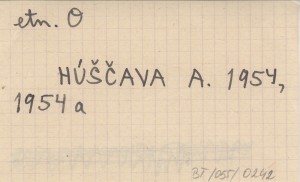 etn. O
HÚŠČAVA A. 1954,
1954 a
BT/055/0242